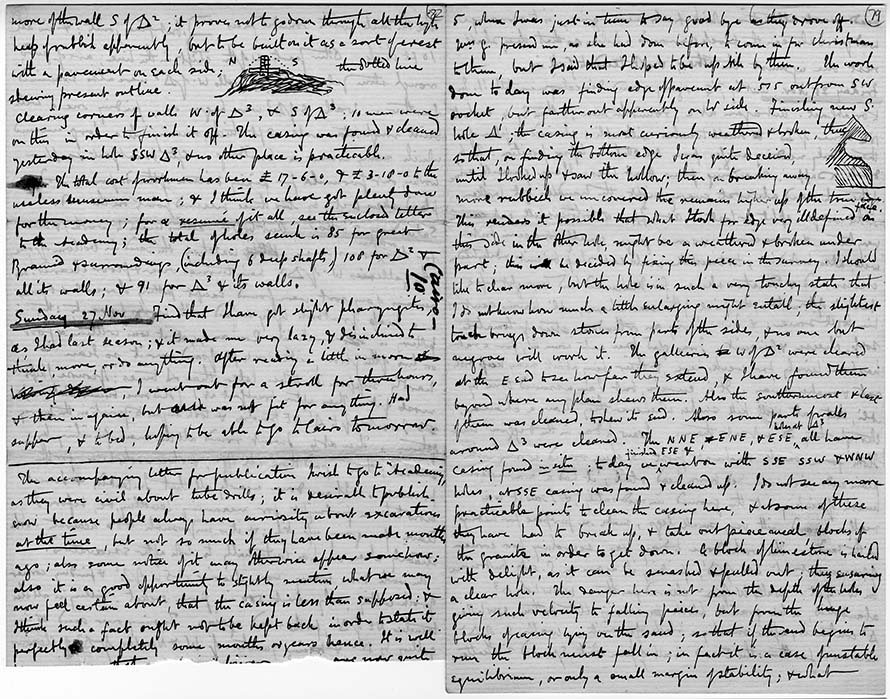 more of the wall S of Δ²; it proves not to go down through all the high
heap of rubbish apparently, but to be built on it as a sort of crest
with a pavement on each side; N S the dotted line
shewing present outline.
Clearing corners of walls W. of Δ³, & S of Δ³; 10 men were
on this in order to finish it off. The casing was found & cleaned
yesterday in hole SSW Δ³, & no other place is practicable.
The total cost of workmen has been £17-6-0, & £3-18-0 to the
useless museum man; & I think we have got plenty done
for the money; for a resumé of it all, see the enclosed letters
to the Academy; the total of holes sunk is 85 for great
Pyramid & surroundings, (including 6 deep shafts) 108 for Δ² &
all its walls; & 91 for Δ³ & its walls.
Cairo-
10
Sunday 27 Nov Find that I have got slight pharyngitis,
as I had last season; & it made me very lazy, & disinclined to
think, move, or do anything. After reading a little in
I went out for a stroll for three hours,
& then in again, but was not fit for anything. Had
supper, & to bed, hoping to be able to go to Cairo tomorrow.
The accompanying letter for publication I wish to go to Academy,
as they were civil about tube drills; it is desirable to publish
now because people always have curiosity about excavations
at the time, but not so much if they have been made months
ago; also some notice of it may otherwise appear somehow;
also it is a good opportunity to slightly mention what we may
now feel certain about, that the casing is less than supposed; &
I think such a fact ought not to be kept back in order to state it
perfectly & completely some months or years hence. It is well
79
5, when I was just in time to say good bye as they drove off.
Mrs G. pressed me, as she had done before, to come in for Christmas
to them, but I said that I hoped to be up Nile by then. The work
done to day was finding edge of pavement at 575 out from SW
socket, but farther out apparently on W side. Finishing new S.
hole Δ¹ the casing is most curiously weathered & broken, thus
so that, on finding the bottom edge I was quite deceived,
until I looked up & saw the hollow; then on breaking away
more rubbish we uncovered the remains higher up of the true face.
This renders it possible that what I took for edge very ill defined on
this side in the other hole, might be a weathered & broken under
part; this will be decided by fixing this piece in the survey. I should
like to clear more, but the hole is in such a very touchy state that
I do not know how much a little enlarging might entail. The slightest
touch brings down stones from parts of the sides, & no one but
negroes will work it. The galleries W of Δ² were cleared
at the E end to see how far they extend, & I have found them
beyond where any plan shews them. Also the southernmost & last
of them was cleared, to shew its end. Also some parts of walls
around Δ³ were cleared. The NNE, ENE, & ESE, holes at Δ³ all have
casing found in situ; to day finished ESE & on went on with SSE SSW & WNW
holes, at SSE casing was found & cleaned up. I do not see any more
practicable points to clean the casing here, & at some of these
they have had to break up, & take out piece meal, blocks of
the granite in order to get down. A block of limestone is hailed
with delight, as it can be smashed & pulled out, thus ensuring
a clear hole. The danger here is not from the depth of the holes
giving such velocity to falling pieces, but from the huge
blocks of casing lying on the sand; so that if the sand begins to
run the block must fall in; in fact it is a case of unstable
equilibrium, or only a small margin of stability; & what